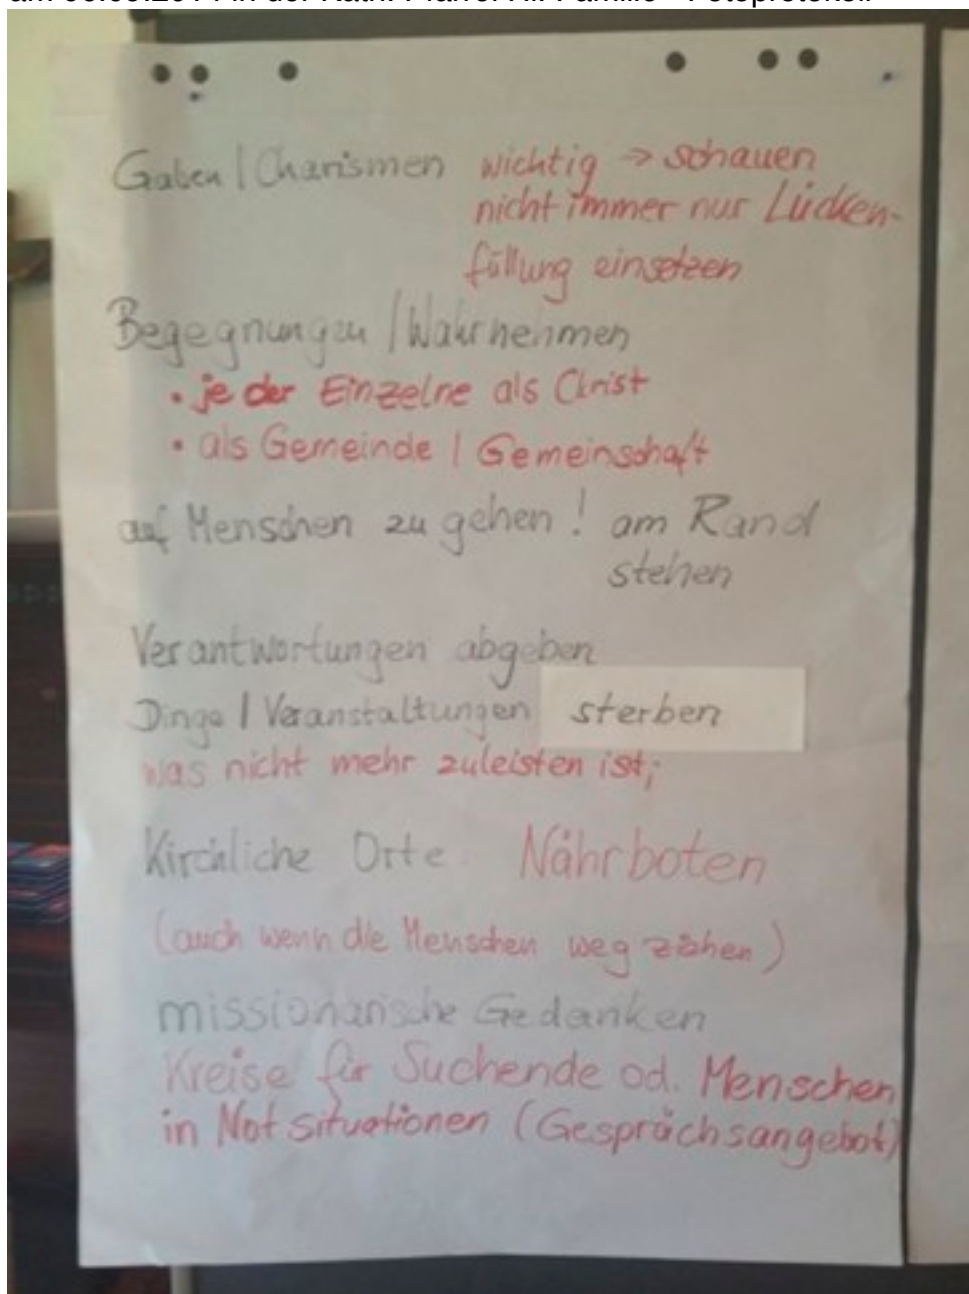 Gaben / Charismen wichtig → schauen
nicht immer nur Lücken-
füllung einsetzen
Begegnungen / Wahrnehmen
• jeder Einzelne als Christ
• als Gemeinde / Gemeinschaft
auf Menschen zu gehen! am Rand
stehen
Verantwortungen abgeben
Dinge / Veranstaltungen sterben
was nicht mehr zuleisten ist;
Kirchliche Orte Nährboten
(auch wenn die Menschen weg ziehen)
missionarische Gedanken
Kreise für Suchende od. Menschen
in Not situationen (Gesprächsangebot)